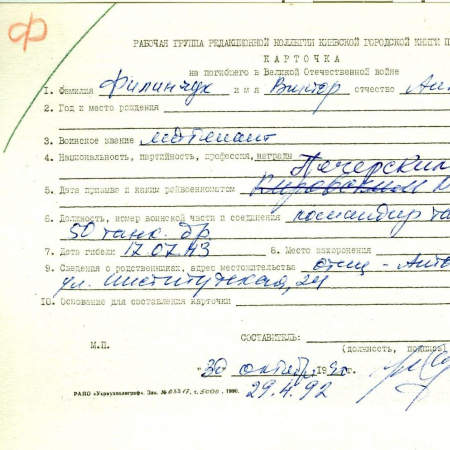 Ф
РАБОЧАЯ ГРУППА РЕДАКЦИОННОЙ КОЛЛЕГИИ КИЕВСКОЙ ГОРОДСКОЙ КНИГИ П
КАРТОЧКА
на погибшего в Великой Отечественной войне
1. Фамилия Филинчук имя Виктор отчество Ант
2. Год и место рождения
3. Воинское звание лейтенант
4. Национальность, партийность, профессия, награды
Печерским
5. Дата призыва и каким райвоенкоматом Кировским
6. Должность, номер воинской части и соединения командир та
50 танк. бр
7. Дата гибели 17.07.43 8. Место захоронения
9. Сведения о родственниках, адрес местожительства отец - Анто
ул. Институтская, 24
10. Основание для составления карточки
СОСТАВИТЕЛЬ:
М.П. (должность, подпись)
"30" октября 1990г.
29.4.92
РАПО «Укрвузполиграф». Зак. № 03217, т. 5000. 1990.